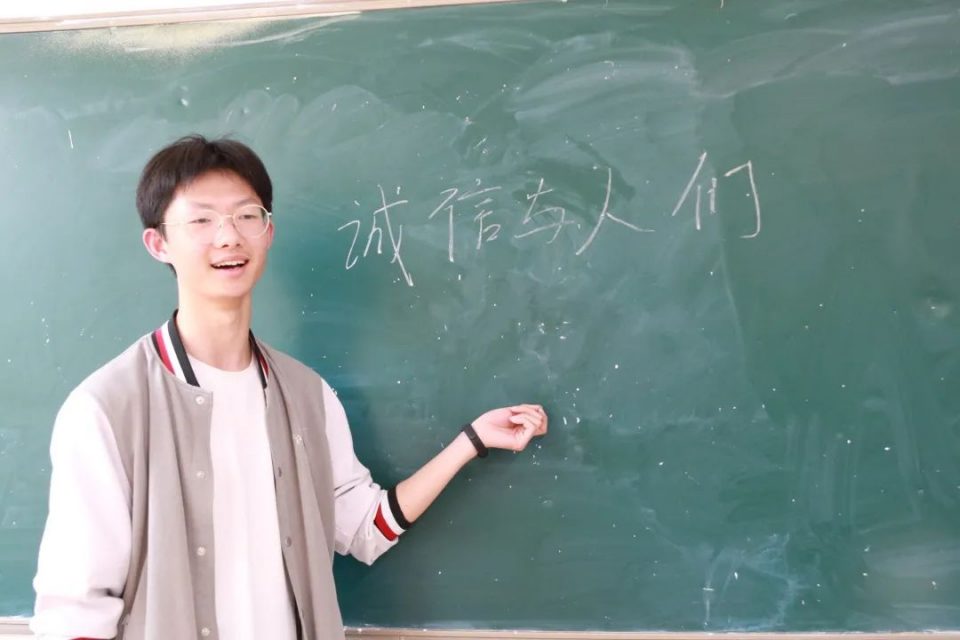 诚信与人们